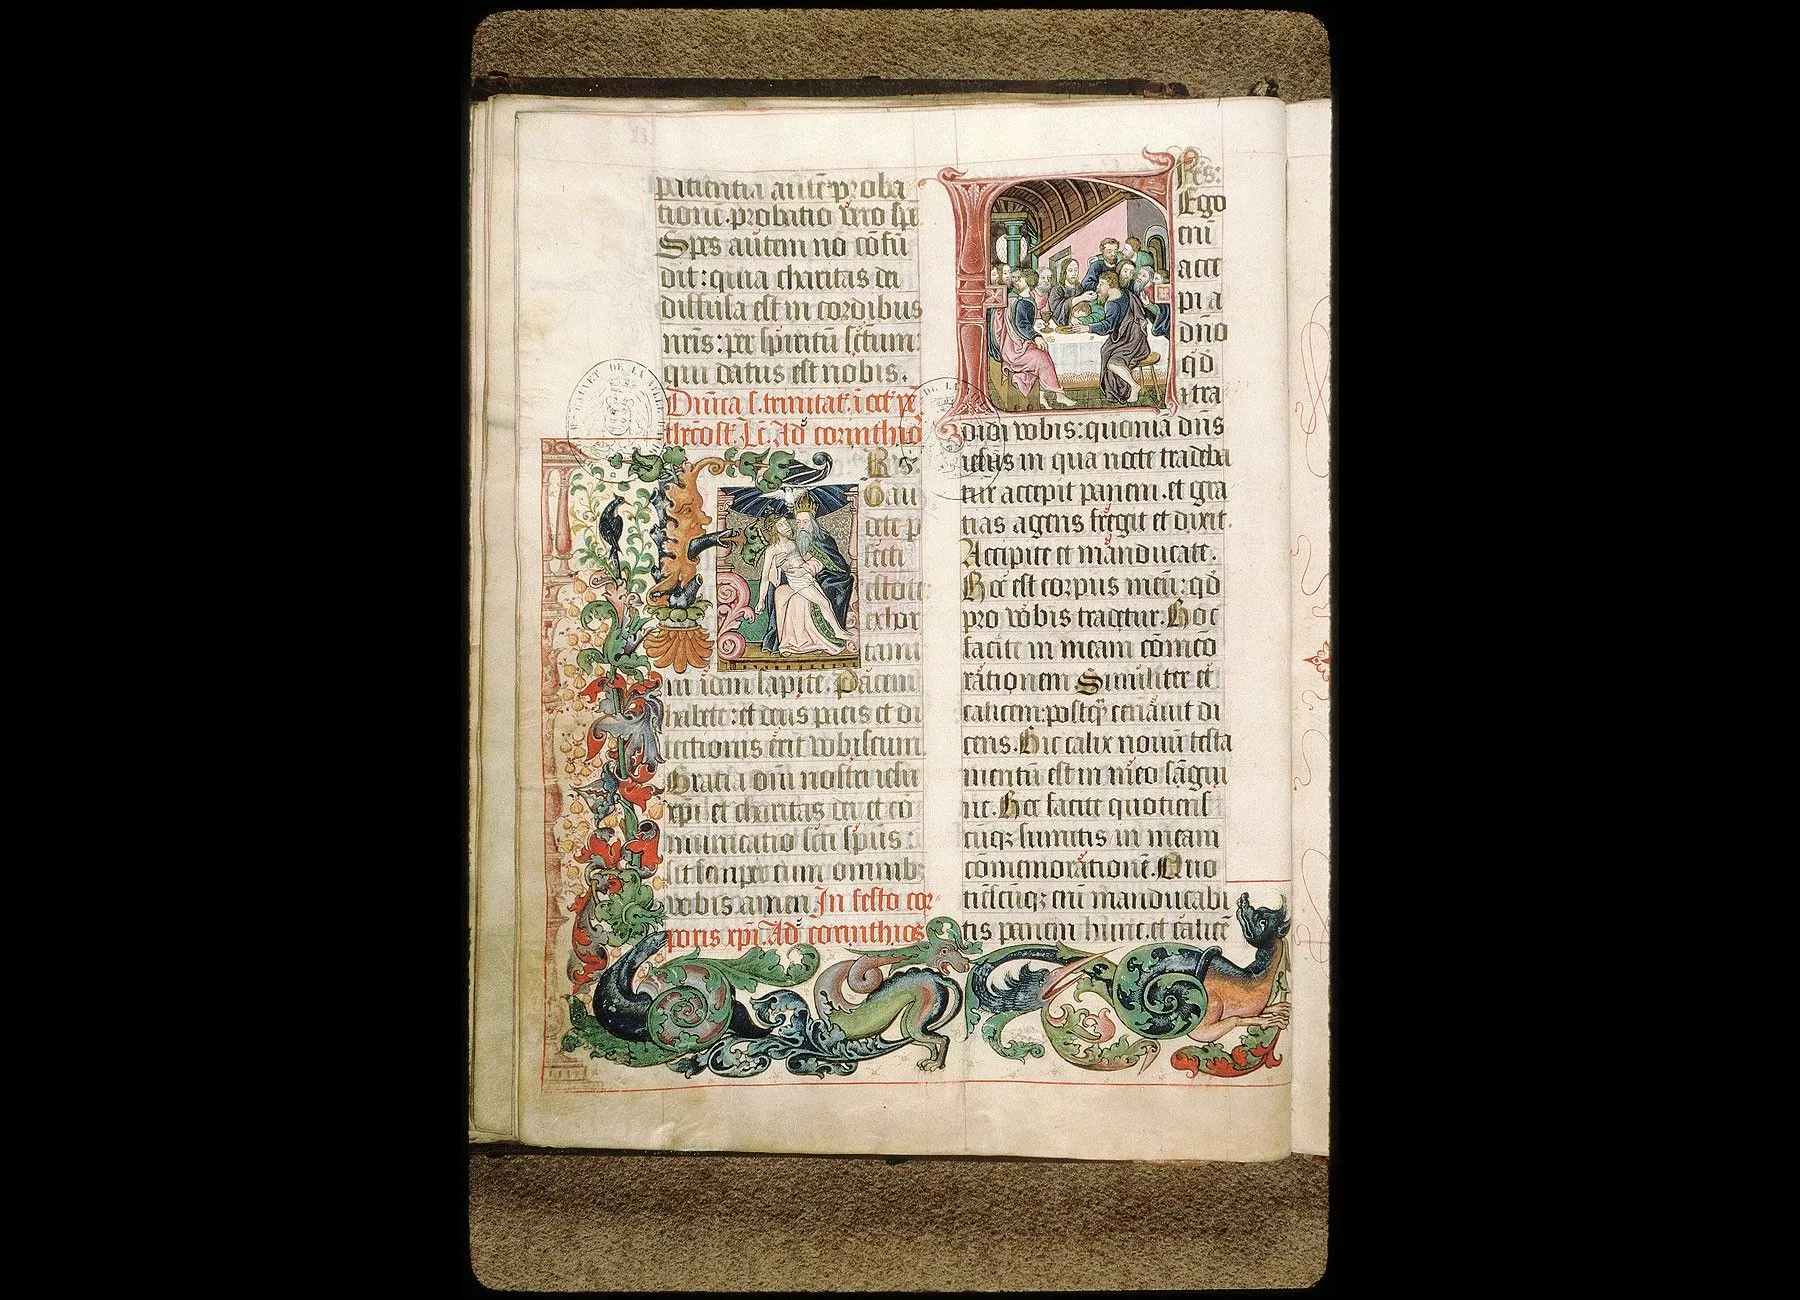 patientia autē proba
tionē. probatio vero spē.
Spes autem nō cōfū
dit: quia charitas dei
diffusa est in cordibus
nr̄is: per spiritū sc̄tum:
qui datus est nobis.
Dn̄ica s. trinitat. i oct. pē
thecost. Lc̄. Ad corinthios
Fr̄s.
Gau
dete p
fecti
estote:
exhor
tami
ni idem sapite. Pacem
habete: et deus pacis et di
lectionis erit vobiscum.
Gratia dn̄i nostri iesu
xp̄i et charitas dei et cō
municatio sc̄ti sp̄us:
sit semper cum omnibꝫ
vobis amen. In festo cor-
poris xp̄i. Ad corinthios
Fr̄es:
Ego
eni
acce
pi a
dn̄o
qd̄
⁊ tra
didi vobis: quoniā dn̄s
iesus in qua nocte tradeba
tur accepit panem. et gra
tias agens fregit et dixit.
Accipite et māducate.
Hoc est corpus meū: qd̄
pro vobis tradetur. Hoc
facite in meam cōmēo
rationem Similiter et
calicem: postq̄ cenauit di
cens. Hic calix nouū testa
mentū est in meo sāgui
ne. Hoc facite quotiens
cūqꝫ sumitis in meam
cōmemorationē. Quo
tiēscūqꝫ eni manducabi
tis panem hunc. et calicē